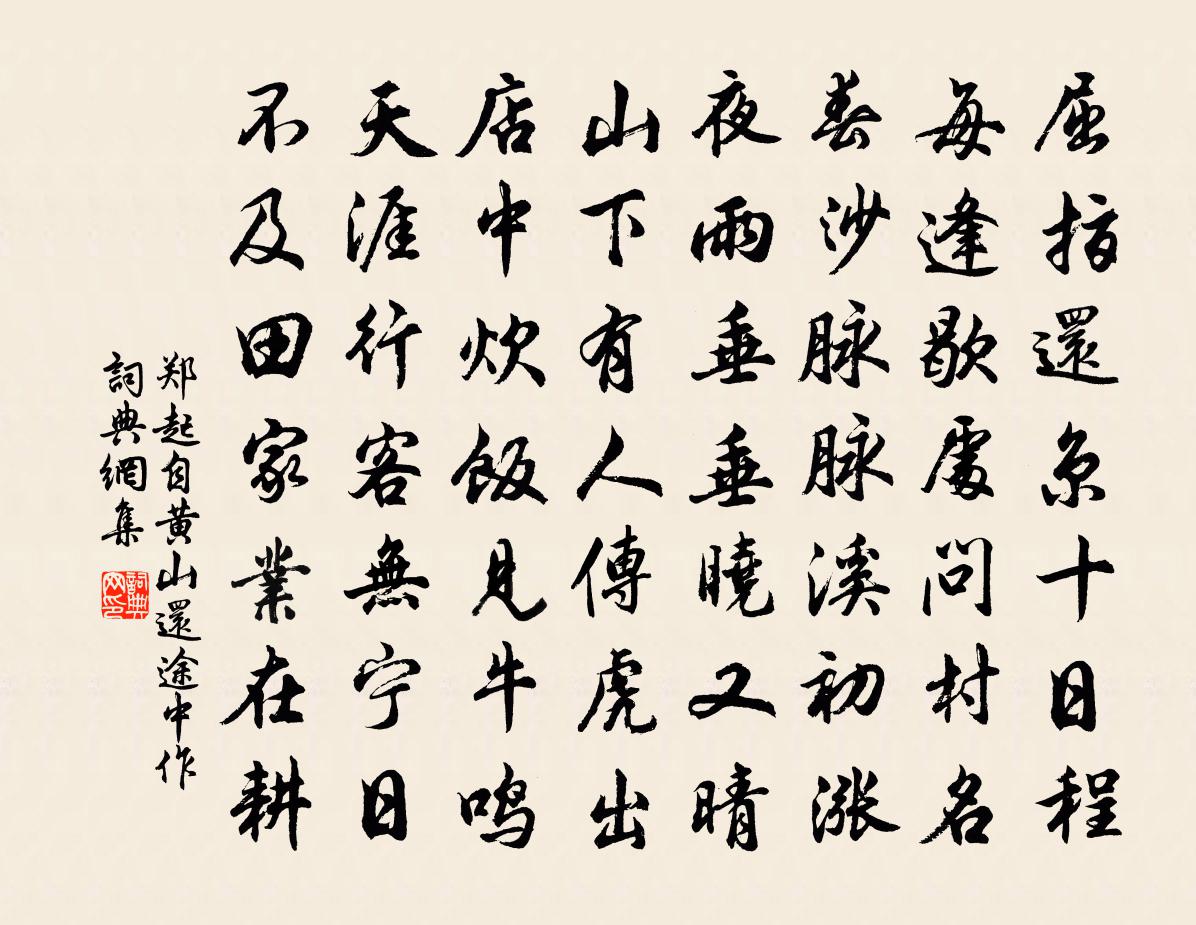 屈指還京十日程
每逢歇處問村名
春沙脉脉溪初漲
夜雨垂垂曉又晴
山下有人傳虎出
店中炊飯見牛鸣
天涯行客無宁日
不及田家業在耕
郑起自黄山還途中作
詞典網集
詞典网印